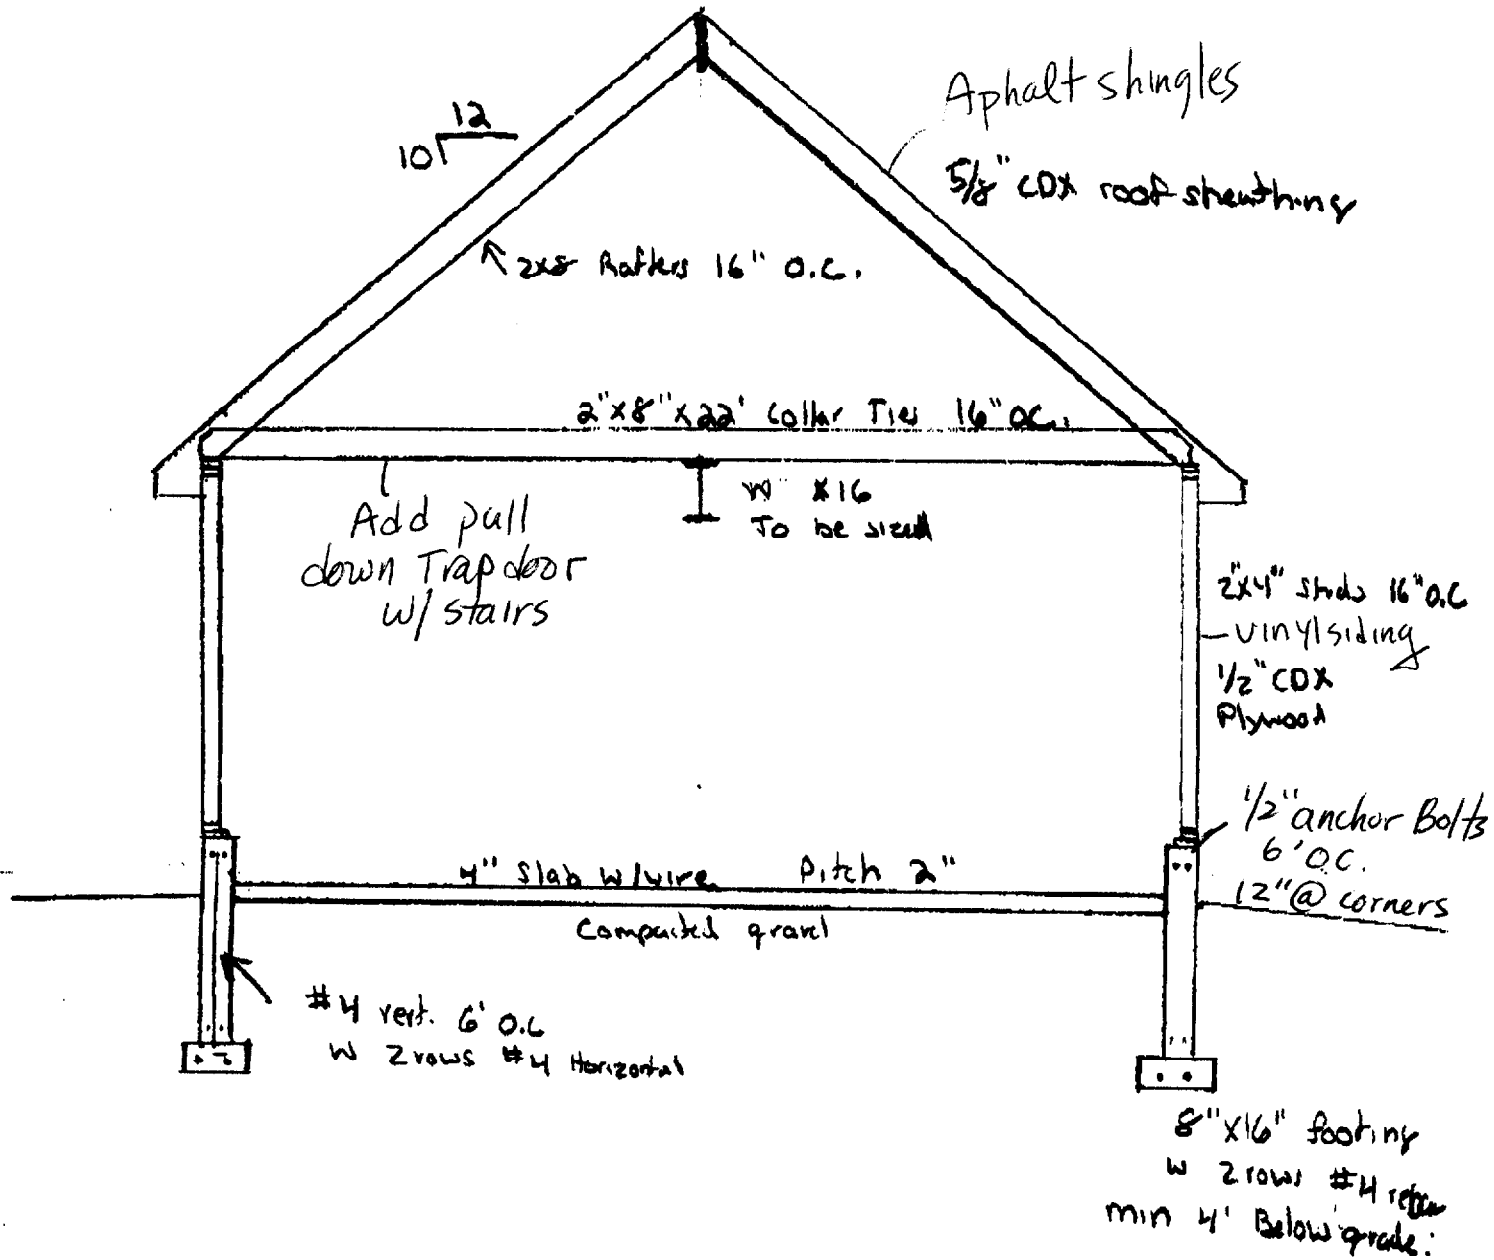 Aphalt shingles
12
10
5/8" CDX roof sheathing
2x8 Rafters 16" O.C.
2"x8"x22' Collar Ties 16" OC.
W" x16
To be sized
Add pull
down Trapdoor
w/ stairs
2"x4" studs 16" O.C
vinyl siding
1/2" CDX
Plywood
1/2" anchor Bolts
6' O.C.
12" @ corners
4" Slab w/wire Pitch 2"
Compacted gravel
#4 vert. 6' O.C
W 2 rows #4 Horizontal
8"x16" footing
W 2 rows #4 rebar
min 4' Below grade.